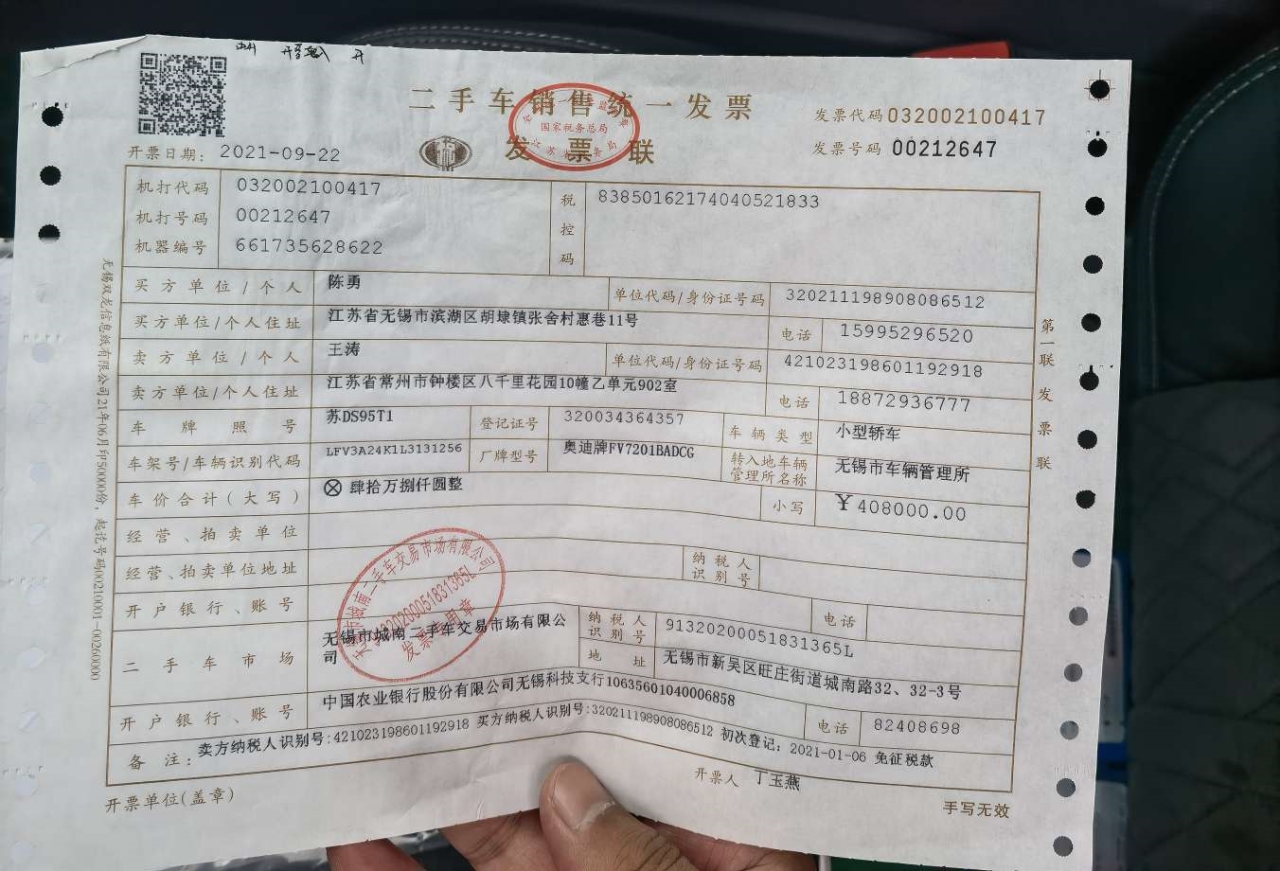 二手车销售统一发票
发票联
国家税务总局
发票代码 032002100417
发票号码 00212647
开票日期: 2021-09-22
机打代码 032002100417
机打号码 00212647
机器编号 661735628622
税控码 83850162174040521833
买方单位/个人 陈勇 单位代码/身份证号码 320211198908086512
买方单位/个人住址 江苏省无锡市滨湖区胡埭镇张舍村惠巷11号 电话 15995296520
卖方单位/个人 王涛 单位代码/身份证号码 421023198601192918
卖方单位/个人住址 江苏省常州市钟楼区八千里花园10幢乙单元902室 电话 18872936777
车牌照号 苏DS95T1 登记证号 320034364357 车辆类型 小型轿车
车架号/车辆识别代码 LFV3A24K1L3131256 厂牌型号 奥迪牌FV7201BADCG 转入地车辆管理所名称 无锡市车辆管理所
车价合计(大写) ⊗ 肆拾万捌仟圆整 小写 ¥408000.00
经营、拍卖单位
经营、拍卖单位地址 纳税人识别号
开户银行、账号 电话
二手车市场 无锡市城南二手车交易市场有限公司 纳税人识别号 91320200051831365L
地址 无锡市新吴区旺庄街道城南路32、32-3号
开户银行、账号 中国农业银行股份有限公司无锡科技支行10635601040006858 电话 82408698
备注: 卖方纳税人识别号:421023198601192918 买方纳税人识别号:320211198908086512 初次登记: 2021-01-06 免征税款
开票单位(盖章) 开票人 丁玉燕 手写无效
第一联 发票联
无锡双龙信息纸有限公司21年06月印5000份, 起讫号码00210001-00260000
发票专用章